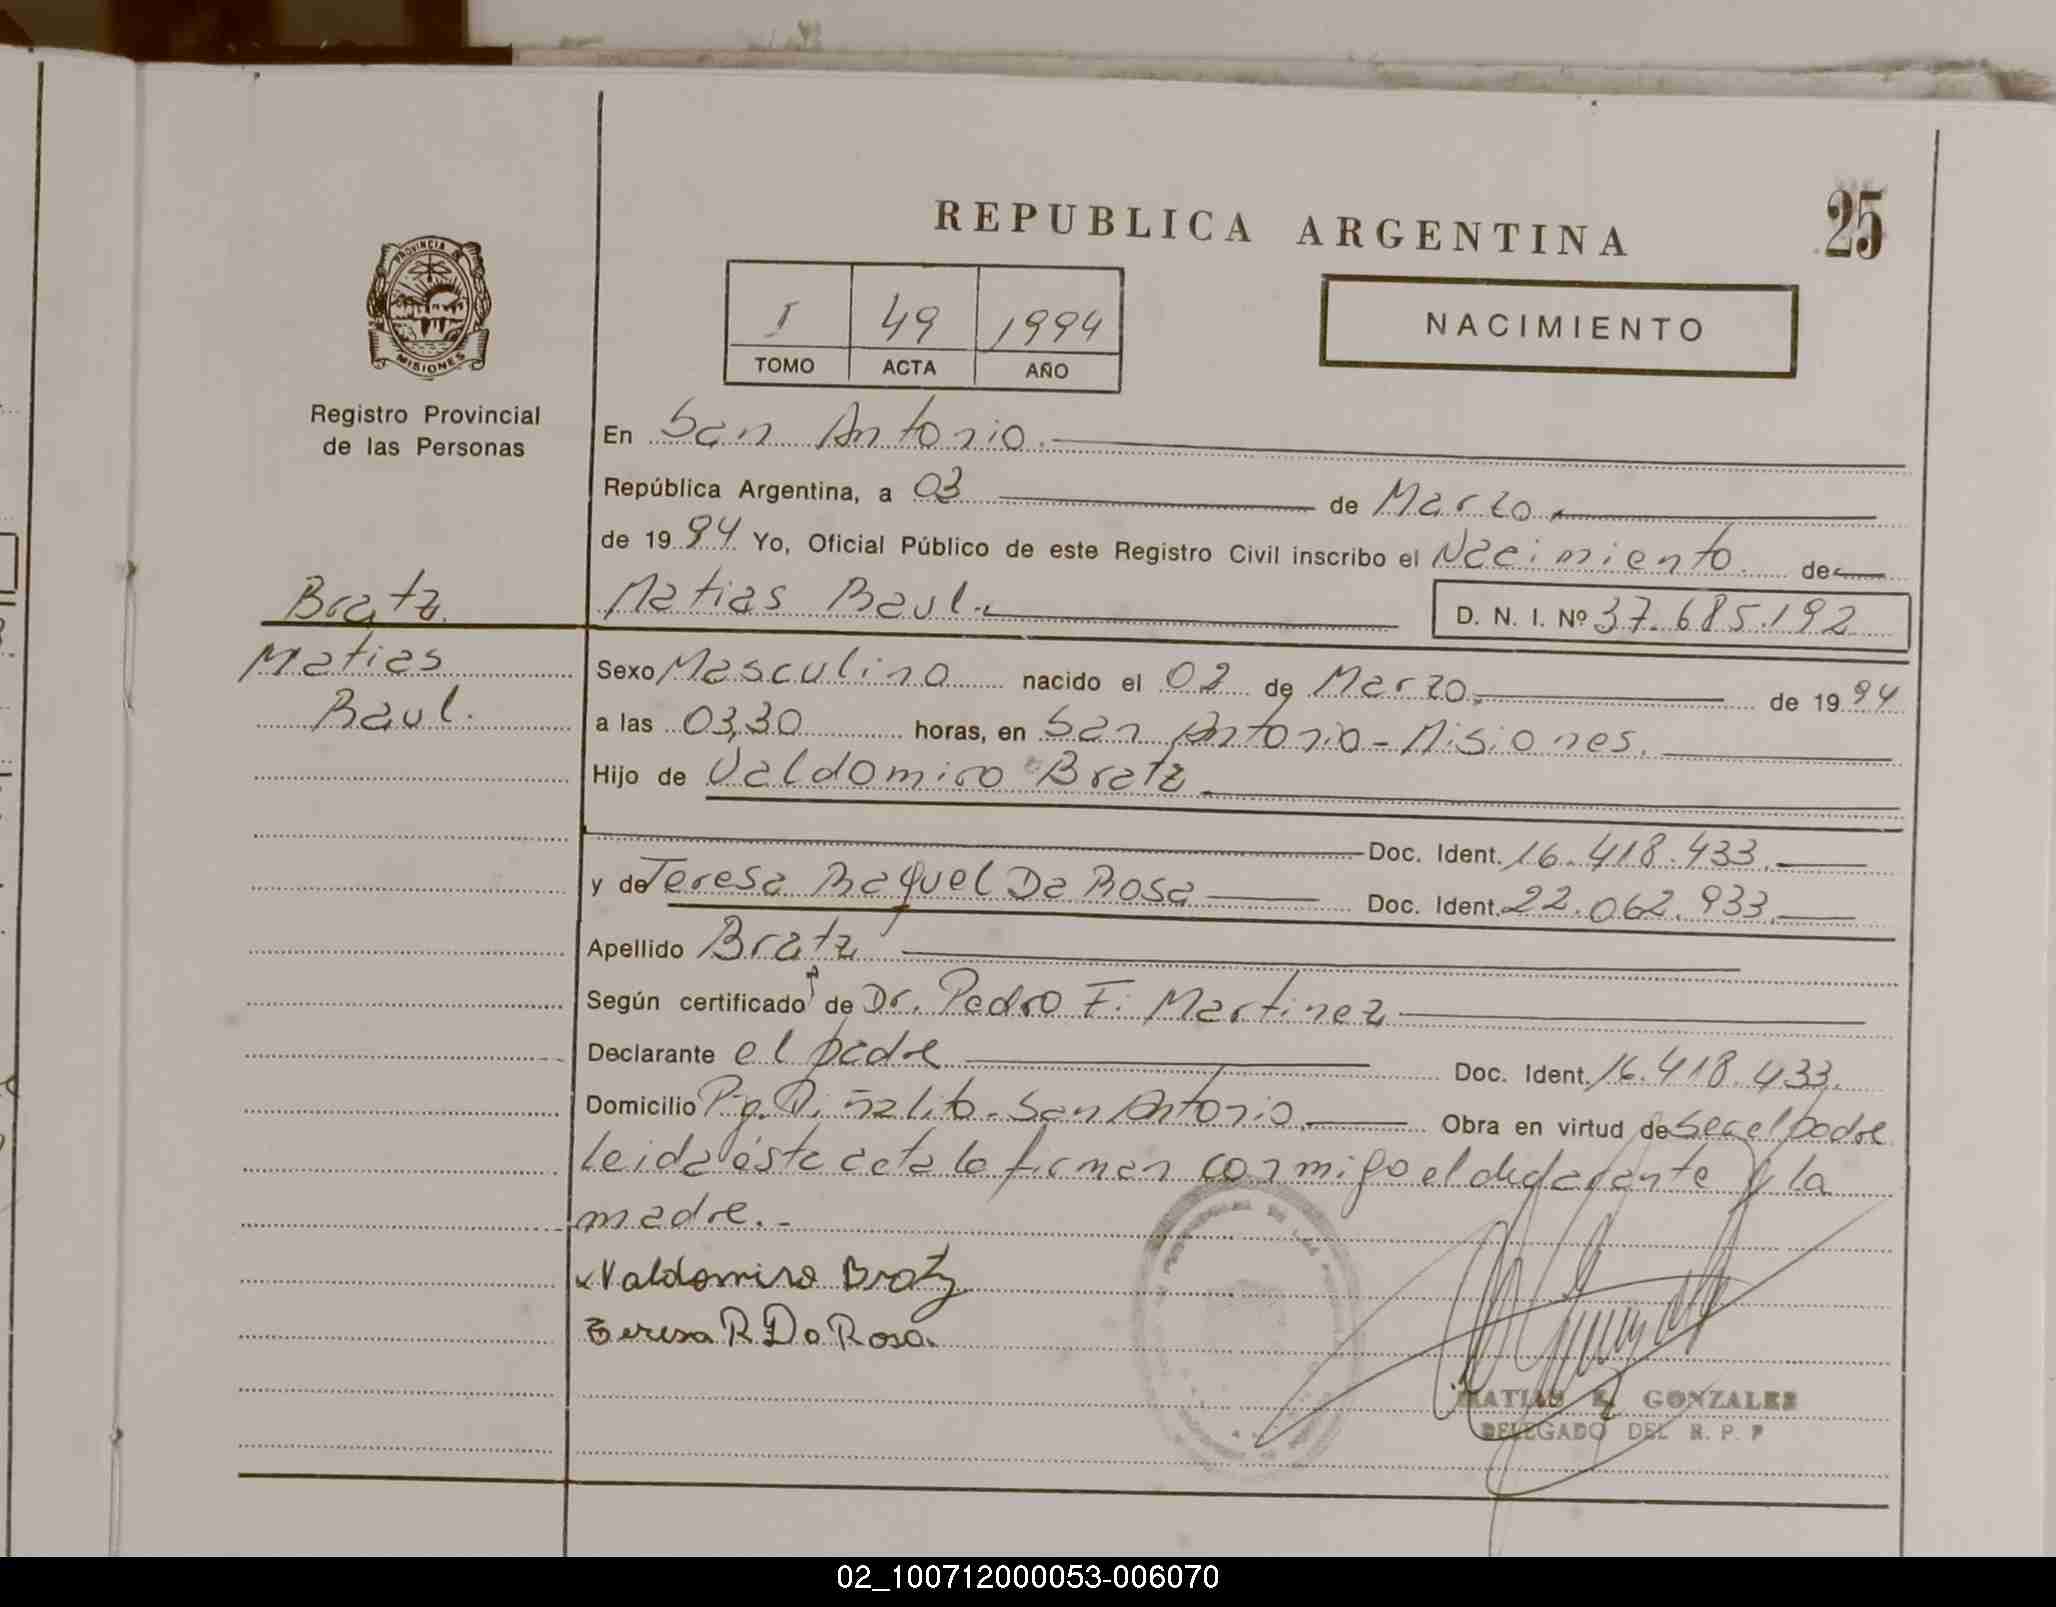 REPUBLICA ARGENTINA
25
PROVINCIA DE
MISIONES
Registro Provincial
de las Personas
I 49 1994
TOMO ACTA AÑO
NACIMIENTO
En San Antonio.
República Argentina, a 03 de Marzo.
de 1994 Yo, Oficial Público de este Registro Civil inscribo el Nacimiento. de
Bratz.
Matias Raul.
D. N. I. Nº 37.685.192
Matias
Raul.
Sexo Masculino nacido el 02 de Marzo. de 1994
a las 03,30 horas, en San Antonio - Misiones.
Hijo de Valdomiro Bratz
Doc. Ident. 16.418.433.
y de Teresa Raquel Da Rosa Doc. Ident. 22.062.933.
Apellido Bratz
Según certificado de Dr. Pedro F. Martinez
Declarante el padre Doc. Ident. 16.418.433.
Domicilio Pje. Piñalito - San Antonio. Obra en virtud de ser el padre
leida ésta acta la firman conmigo el declarante y la
madre.-
x Valdomiro Bratz
Teresa R Da Rosa.
MATIAS E. GONZALES
DELEGADO DEL R. P. P
02_100712000053-006070